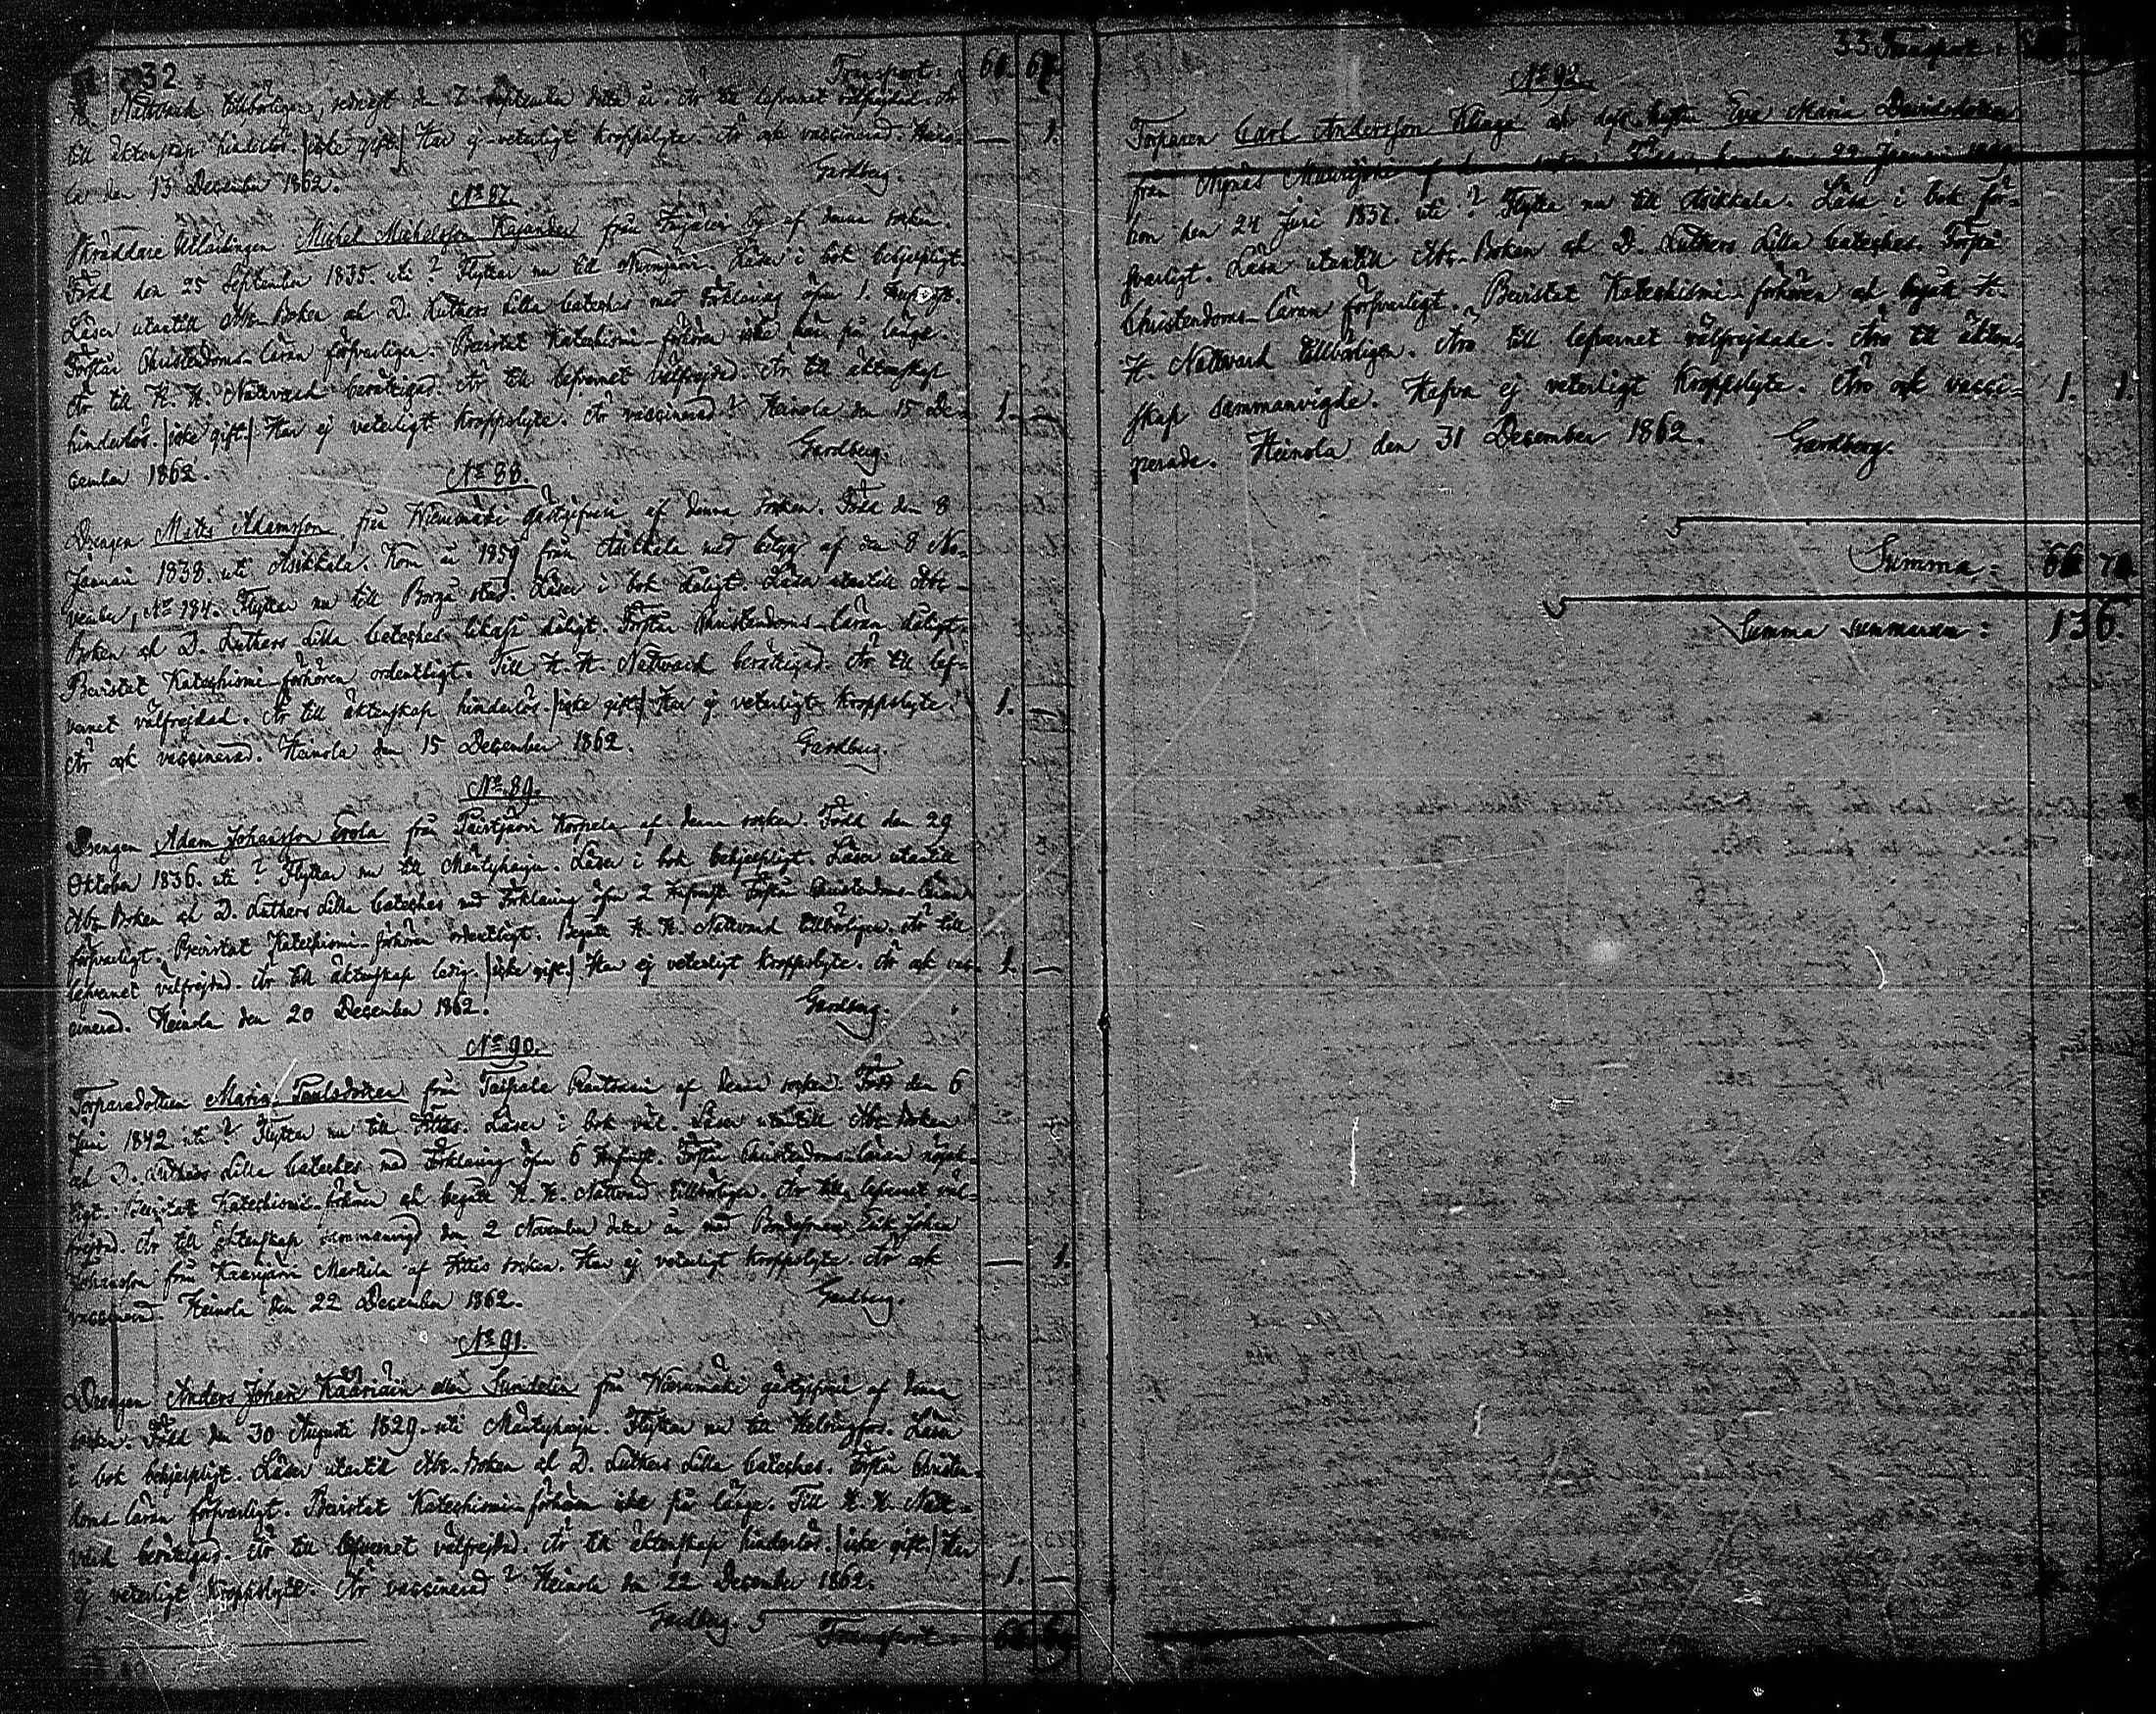 32
Transport: 61. 67.
H. Nattvard tillbörligen, sednast den 7 September detta år. Är till lefvernet välfrejdad. Är
till äktenskap hinderlös. |icke gift.| Har ej veterligt kroppslyte. Är ock vaccinerad. Hein- — 1.
la den 13 December 1862. Gardberg.
No 87.
Skräddare Utlärlingen Michel Michelsson Kajander från by af denna socken.
Född den 25 September 1835. uti? Flyttar nu till Nurmijärvi. Läser i bok behjelpligt.
Läser utantill Abc-Boken och D. Luthers Lilla Cateches med Förklaring öfver 1.
Förstår Christendoms-läran försvarligen. Bevistat Katechismi-förhören icke här på länge.
Är till H. H. Nattvard berättigad. Är till lefvernet välfrejdad. Är till äktenskap
hinderlös. |icke gift.| Har ej veterligt kroppslyte. Är vaccinerad? Heinola den 15 De- 1. —
cember 1862. Gardberg.
No 88.
Drengen Mats Adamsson från gästgifveri af denna socken. Född den 8
Januari 1838. uti Asikkala. Kom år 1859 från Asikkala med betyg af den 8 No-
vember, No 184. Flyttar nu till Borgå stad. Läser i bok dåligt. Läser utantill Abc-
Boken och D. Luthers Lilla Cateches likaså dåligt. Förstår Christendoms-läran dåligt.
Bevistat Katechismi-förhören ordentligt. Till H. H. Nattvard berättigad. Är till lef-
vernet välfrejdad. Är till äktenskap hinderlös. |icke gift.| Har ej veterligt kroppslyte. 1. —
Är ock vaccinerad. Heinola den 15 December 1862. Gardberg.
No 89.
Drengen Adam Johansson Erola från Paistjärvi Korpela af denna socken. Född den 29
Oktober 1836. uti? Flyttar nu till Mäntyharju. Läser i bok behjelpligt. Läser utantill
Abc-Boken och D. Luthers Lilla Cateches med Förklaring öfver 2 Förstår Christendoms-läran
försvarligt. Bevistat Katechismi-förhören ordentligt. Begått H. H. Nattvard tillbörligen. Är till
lefvernet välfrejdad. Är till äktenskap ledig. |icke gift.| Har ej veterligt kroppslyte. Är ock vac- 1. —
cinerad. Heinola den 20 December 1862. Gardberg.
No 90.
Torparedottren Maria Paulsdotter från Taipale af denna socken. Född den 6
Juni 1842 uti? Flyttar nu till Iittis. Läser i bok väl. Läser utantill Abc-Boken
och D. Luthers Lilla Cateches med Förklaring öfver 6 Förstår Christendoms-läran nöjak-
tigt. Bevistat Katechismi-förhören och begått H. H. Nattvard tillbörligen. Är till lefvernet väl-
frejdad. Är till äktenskap sammanvigd den 2 November detta år med Bondesonen Erik Johan
Johansson från Markila af Iittis socken. Har ej veterligt kroppslyte. Är ock — 1.
vaccinerad. Heinola den 22 December 1862. Gardberg.
No 91.
Drengen Anders Johan Kääriäin eller från gästgifveri af denna
socken. Född den 30 Augusti 1829. uti Mäntyharju. Flyttar nu till Helsingfors. Läser
i bok behjelpligt. Läser utantill Abc-Boken och D. Luthers Lilla Cateches. Förstår Christen-
doms-läran försvarligt. Bevistat Katechismi-förhören icke på länge. Till H. H. Natt-
vard berättigad. Är till lefvernet välfrejdad. Är till äktenskap hinderlös. |icke gift.| Har
ej veterligt kroppslyte. Är vaccinerad? Heinola den 22 December 1862. 1. —
Gardberg. Transport:
33 Transport:
No 92.
Torparen Carl Andersson Klinga och dess hustru Eva Maria Davidsdotter
från af denna socken. Född han den 22 Januari
hon den 24 Juni 1837. uti? Flytta nu till Asikkala. Läsa i bok för-
svarligt. Läsa utantill Abc-Boken och D. Luthers Lilla Cateches. Förstå
Christendoms-läran försvarligt. Bevistat Katechismi-förhören och begått H.
H. Nattvard tillbörligen. Äro till lefvernet välfrejdade. Äro till äkten-
skap sammanvigde. Hafva ej veterligt kroppslyte. Äro ock vacci- 1. 1.
nerade. Heinola den 31 December 1862. Gardberg.
Summa:
Summa summarum: 136.